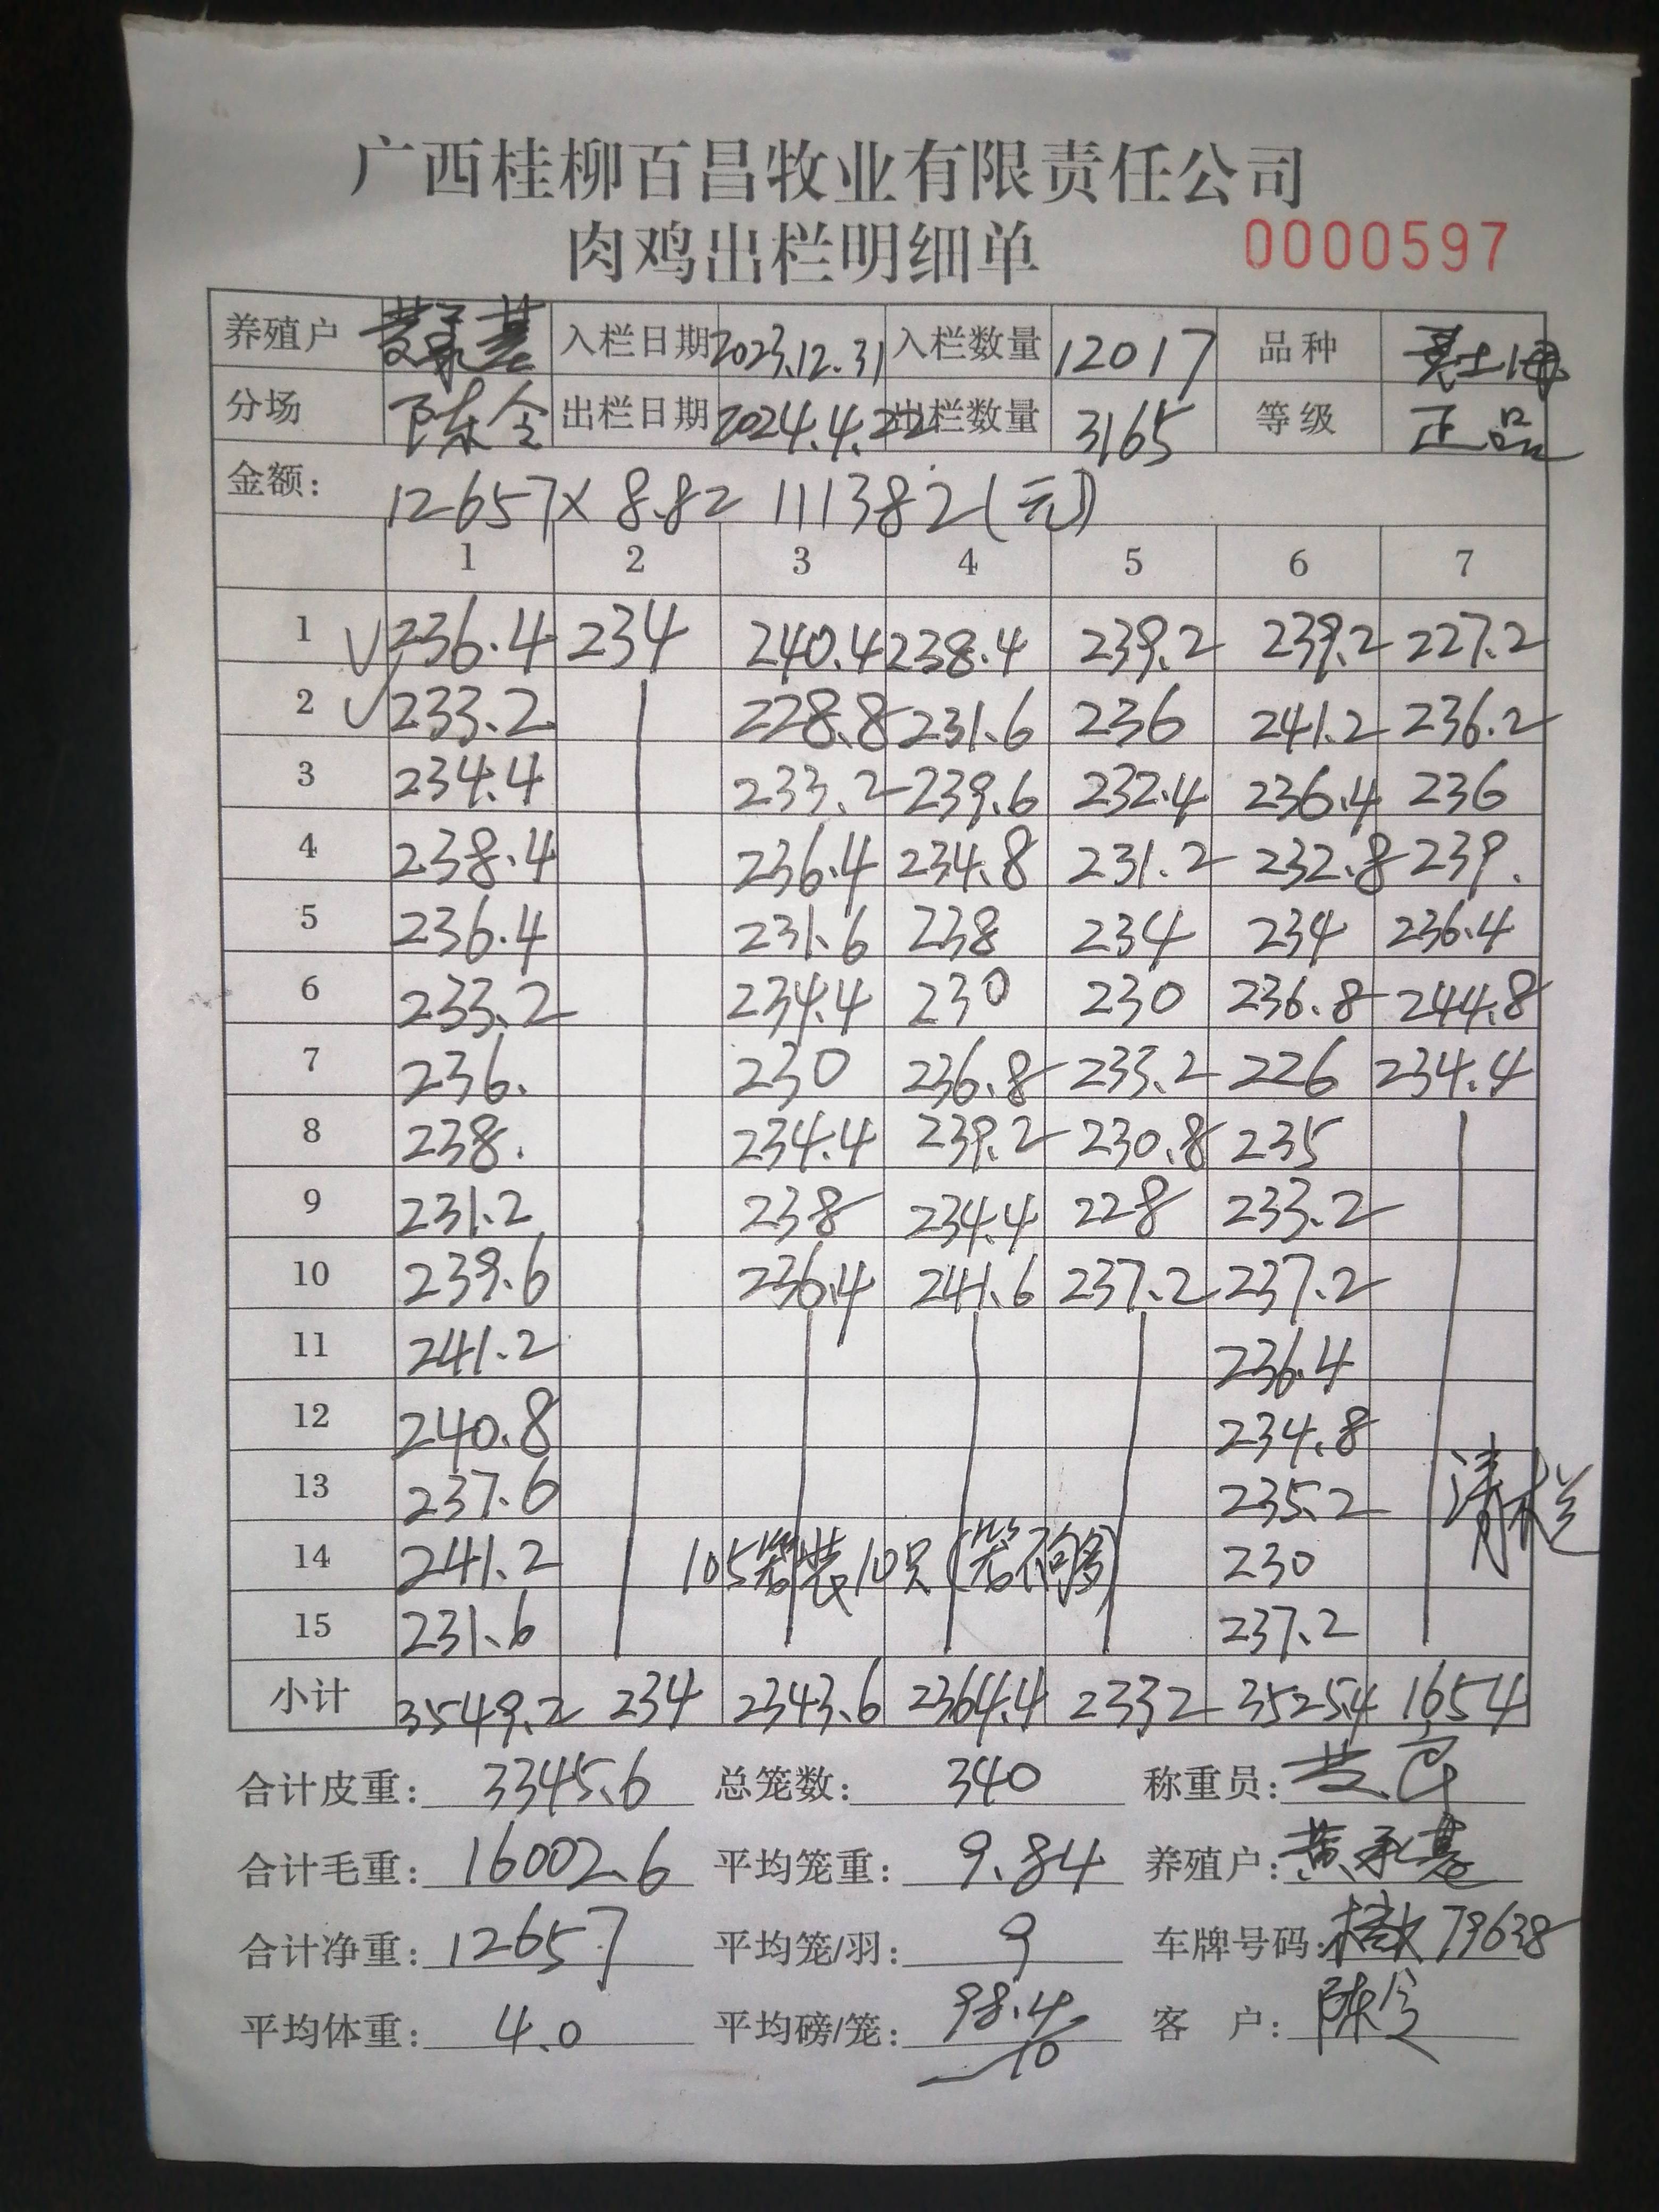 广西桂柳百昌牧业有限责任公司
肉鸡出栏明细单 0000597
养殖户 黄承基 入栏日期 2023.12.31 入栏数量 12017 品种
分场 陈全 出栏日期 2024.4.22 出栏数量 3165 等级 正品
金额: 12657×8.8= 111382(元)
1 2 3 4 5 6 7
1 √236.4 234 240.4 238.4 239.2 239.2 227.2
2 √233.2 228.8 231.6 236 241.2 236.2
3 234.4 233.2 239.6 232.4 236.4 236
4 238.4 236.4 234.8 231.2 232.8 239.
5 236.4 231.6 238 234 234 236.4
6 233.2 234.4 230 230 236.8 244.8
7 236. 230 236.8 233.2 226 234.4
8 238. 234.4 239.2 230.8 235
9 231.2 238 234.4 228 233.2
10 239.6 236.4 241.6 237.2 237.2
11 241.2 236.4
12 240.8 234.8
13 237.6 235.2 清栏
14 241.2 105笼装10只(笼不够) 230
15 231.6 237.2
小计 3549.2 234 2343.6 2364.4 2332 3525.4 1654
合计皮重: 3345.6 总笼数: 340 称重员:
合计毛重: 16002.6 平均笼重: 9.84 养殖户: 黄承基
合计净重: 12657 平均笼/羽: 9 车牌号码: 79638
平均体重: 4.0 平均磅/笼: 98.4 10 客户: 陈全